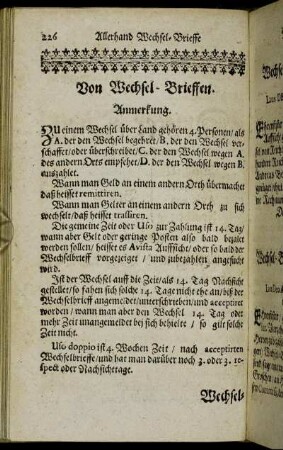 226 Allerhand Wechsel-Brieffe
Von Wechsel-Brieffen.
Anmerkung.
ZU einem Wechsel über Land gehören 4. Personen/ als
A. der den Wechsel begehret/ B. der den Wechsel ver-
schaffet/ oder überschreibet/ C. der den Wechsel wegen A.
des andern Orts empfehet/ D. der den Wechsel wegen B.
auszahlet.
Wann man Geld an einem andern Orth übermachet
daß heisset remittiren.
Wann man Gelter an einem andern Orth zu sich
wechselt/ daß heisset trassiren.
Die gemeine Zeit oder Uso zur Zahlung ist 14. Tag/
wann aber Gelt oder geringe Posten also bald bezalet
werden sollen/ heisset es Avista Auffsicht/ oder so bald der
Wechselbrieff vorgezeiget / und zubezahlen angesucht
wird.
Ist der Wechsel auff die Zeit/ als 14. Tag Nachsicht
gestellet/ so fahen sich solche 14. Tage nicht ehe an/ biß der
Wechselbrieff angemeldet/ unterschrieben/ und acceptirt
worden / wann man aber den Wechsel 14. Tag oder
mehr Zeit unangemeldet bey sich behielte / so gilt solche
Zeit nicht.
Uso doppio ist 4. Wochen Zeit / nach acceptirten
Wechselbrieffe/ und hat man darüber noch 3. oder 3. re-
spect oder Nachsichttage.
Wechsel-